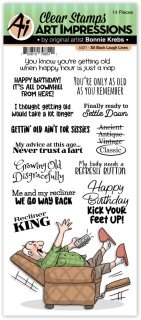 Clear Stamps
14 Pieces
Ai
ART IMPRESSIONS
by original artist Bonnie Krebs
Sit Back Laugh Lines
You know you're getting old
when happy hour is just a nap
HAPPY BIRTHDAY!
IT'S ALL DOWNHILL
FROM HERE!
YOU'RE ONLY AS OLD
AS YOU REMEMBER
I thought getting old
would take a lot longer
Finally ready to
Settle Down
GETTIN' OLD AIN'T FOR SISSIES
My advice at this age...
Never trust a fart
Ancient
Antique
Vintage
Classic
Growing Old
Disgracefully
My body needs a
REFRESH BUTTON
Me and my recliner
WE GO WAY BACK
Happy
Birthday
Recliner
KING
KICK YOUR
FEET UP!